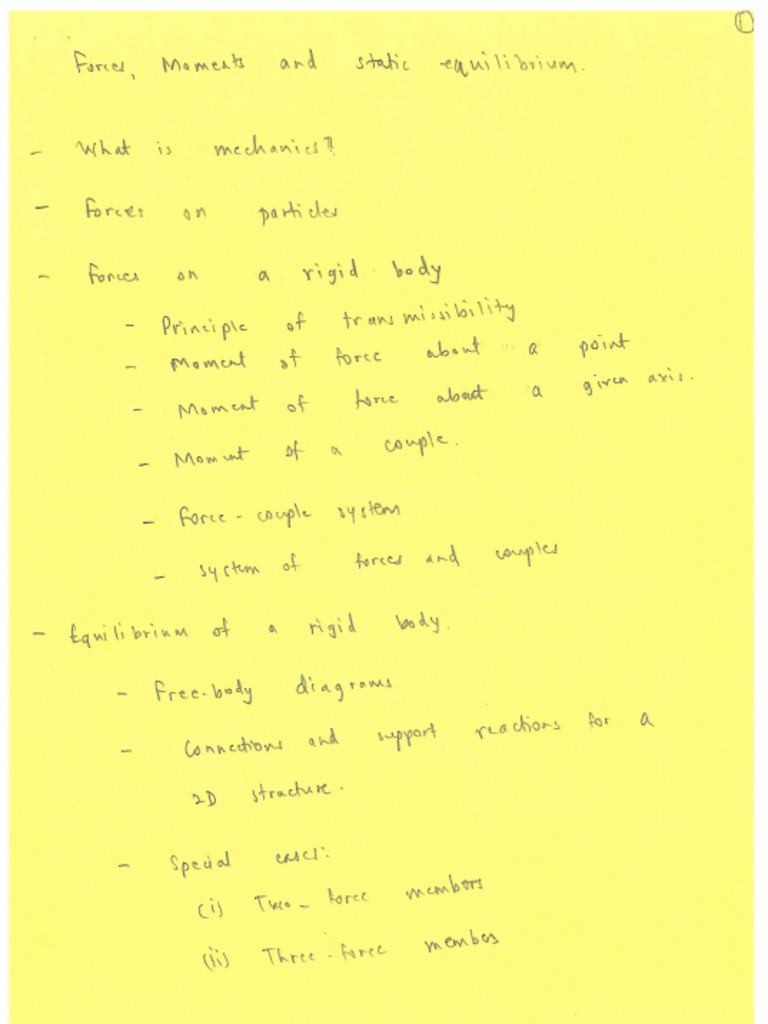 1
Forces, Moments and static equilibrium.
- What is mechanics?
- Forces on particles
- Forces on a rigid body
- Principle of transmissibility
- Moment of force about a point
- Moment of force about a given axis.
- Moment of a couple.
- Force-couple system
- system of forces and couples
- Equilibrium of a rigid body.
- Free-body diagrams
- Connections and support reactions for a
2D structure.
- Special cases:
(i) Two-force members
(ii) Three-force members